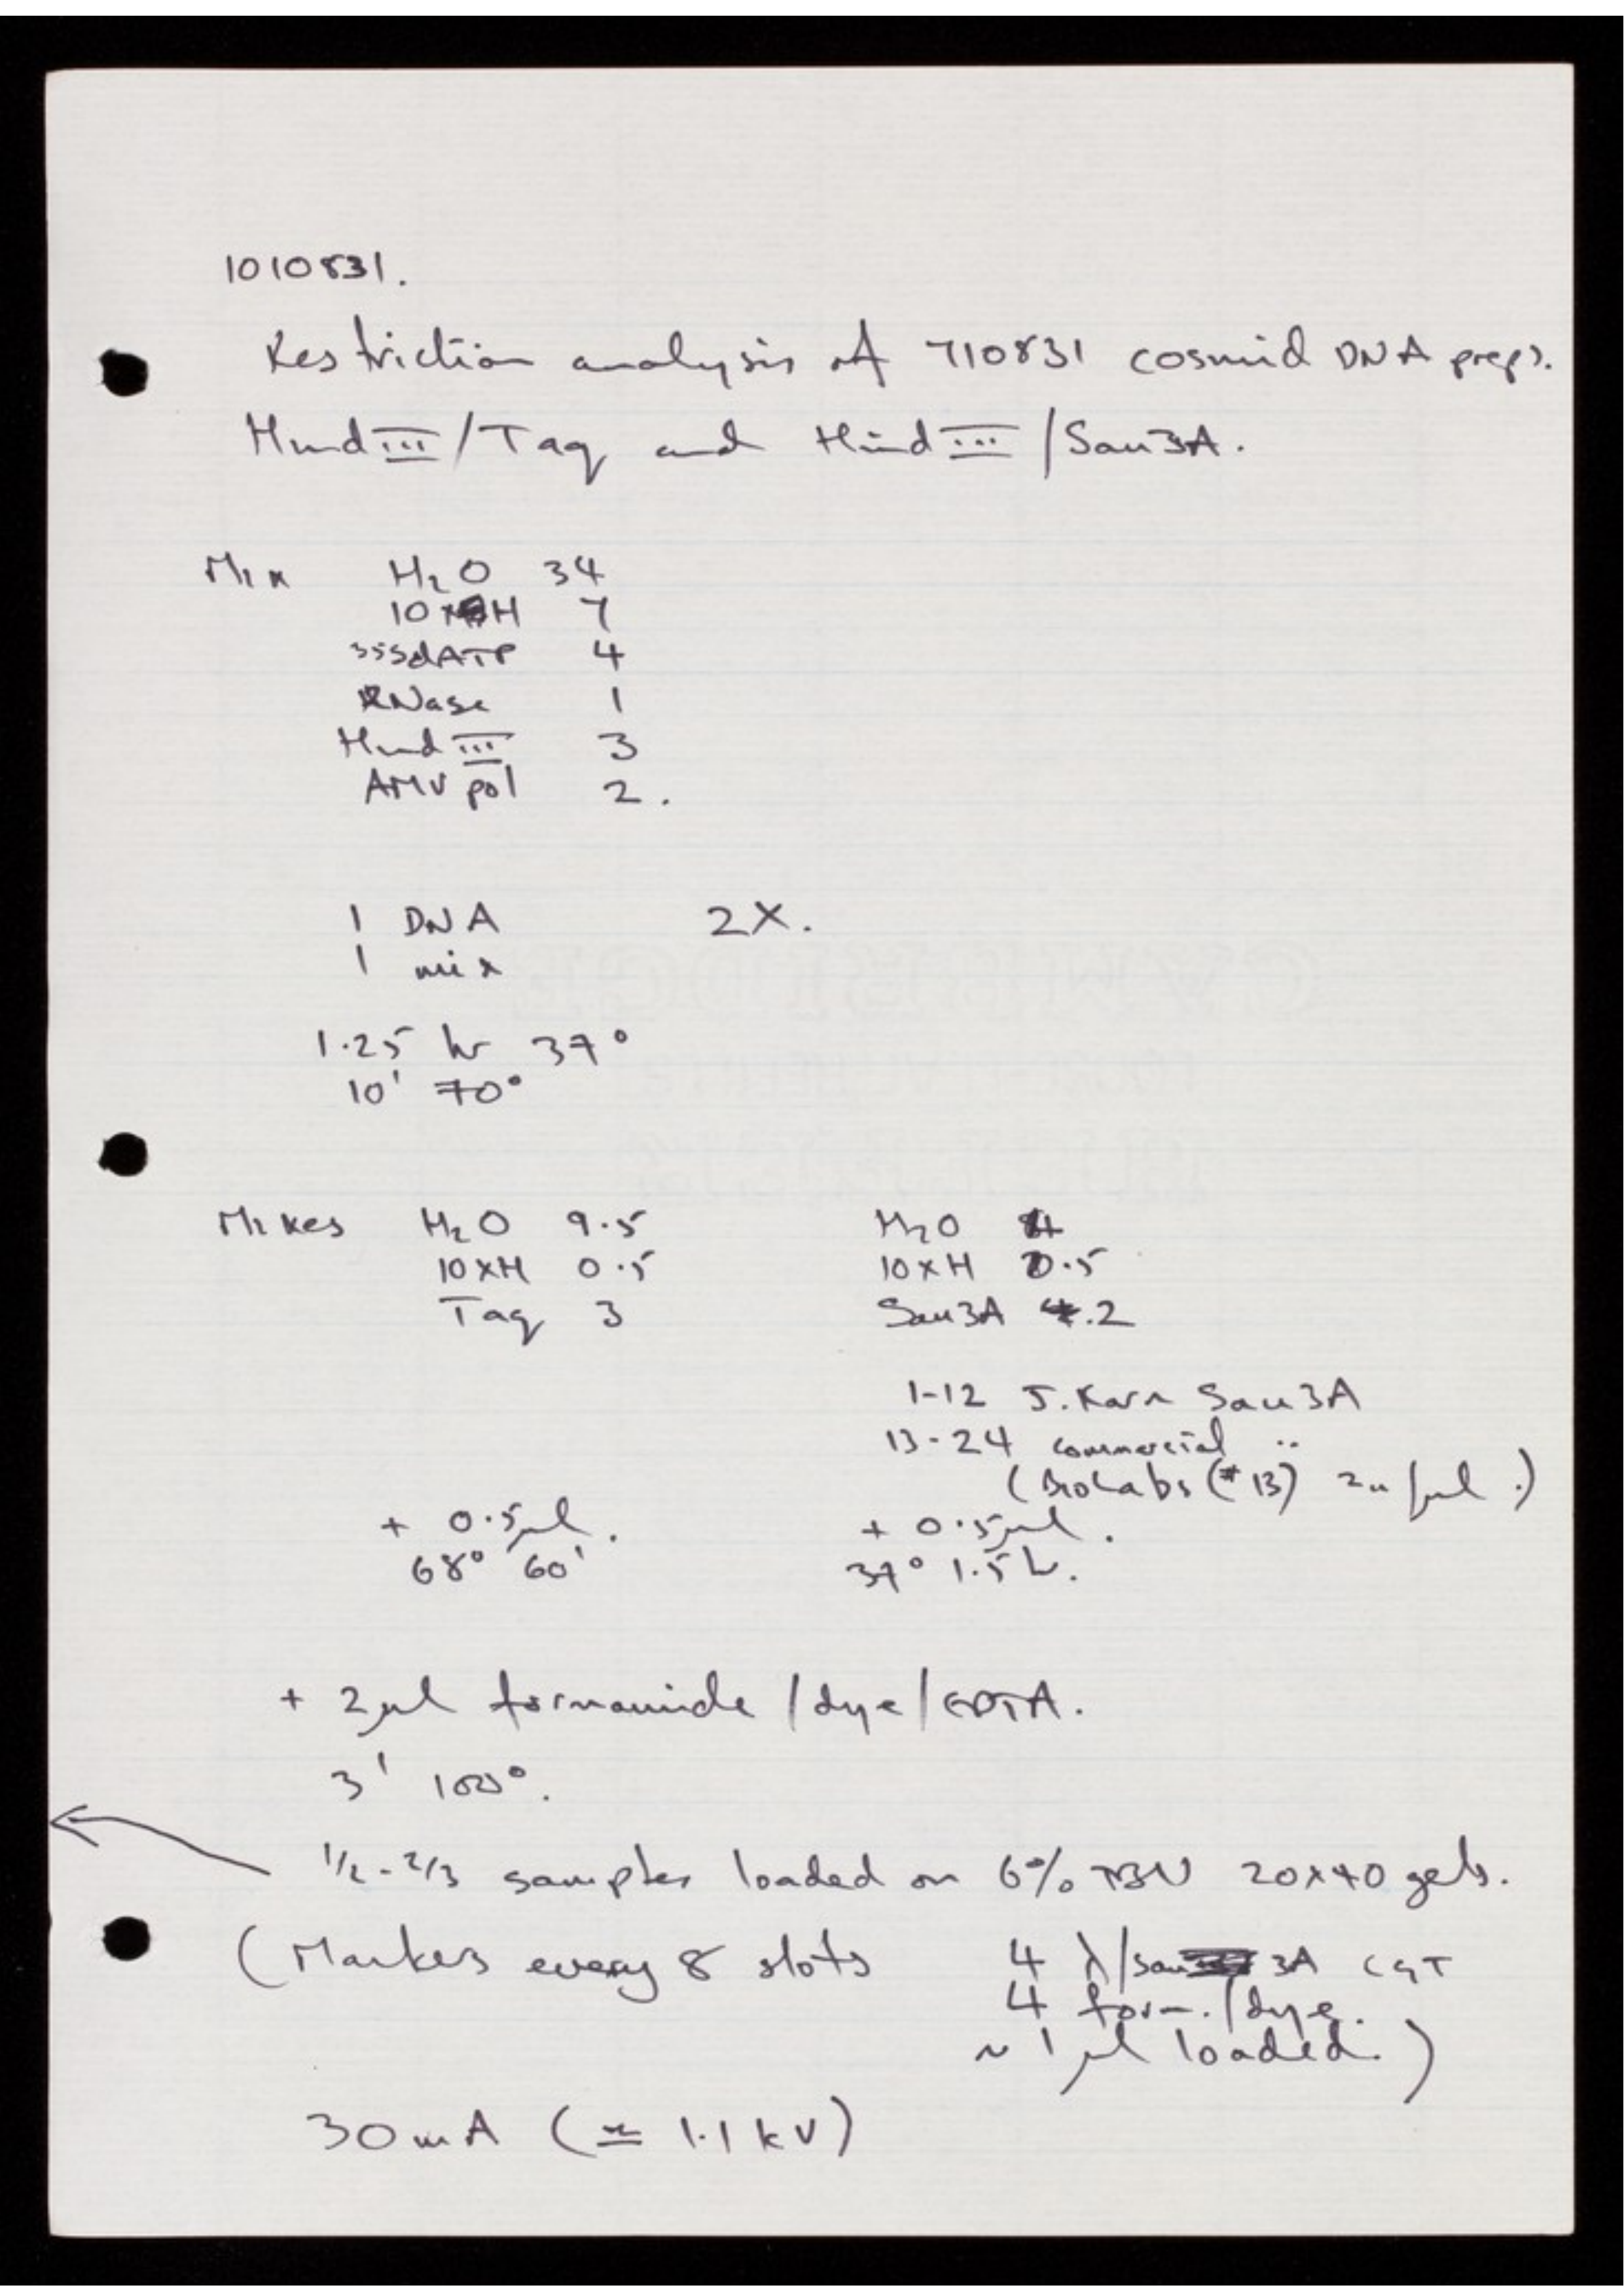 1010831.
Restriction analysis of 710831 cosmid DNA preps.
Hind III / Taq and Hind III / Sau3A.
Mix H2O 34
10xH 7
35SdATP 4
RNase 1
Hind III 3
AMV pol 2.
1 DNA 2X.
1 mix
1.25 hr 37°
10' 70°
Mixes H2O 9.5 H2O 4
10xH 0.5 10xH 0.5
Taq 3 Sau3A .2
1-12 J. Karn Sau3A
13-24 commercial "
(BioLabs (#13) 2u/µl.)
+ 0.5µl. + 0.5µl.
68° 60' 37° 1.5 h.
+ 2µl formamide / dye / EDTA.
3' 100°.
1/2 - 2/3 samples loaded on 6% TBU 20x40 gels.
(Markers every 8 slots 4 λ/Sau 3A CGT
4 form./dye.
~ 1 µl loaded.)
30mA (≃ 1.1 kV)